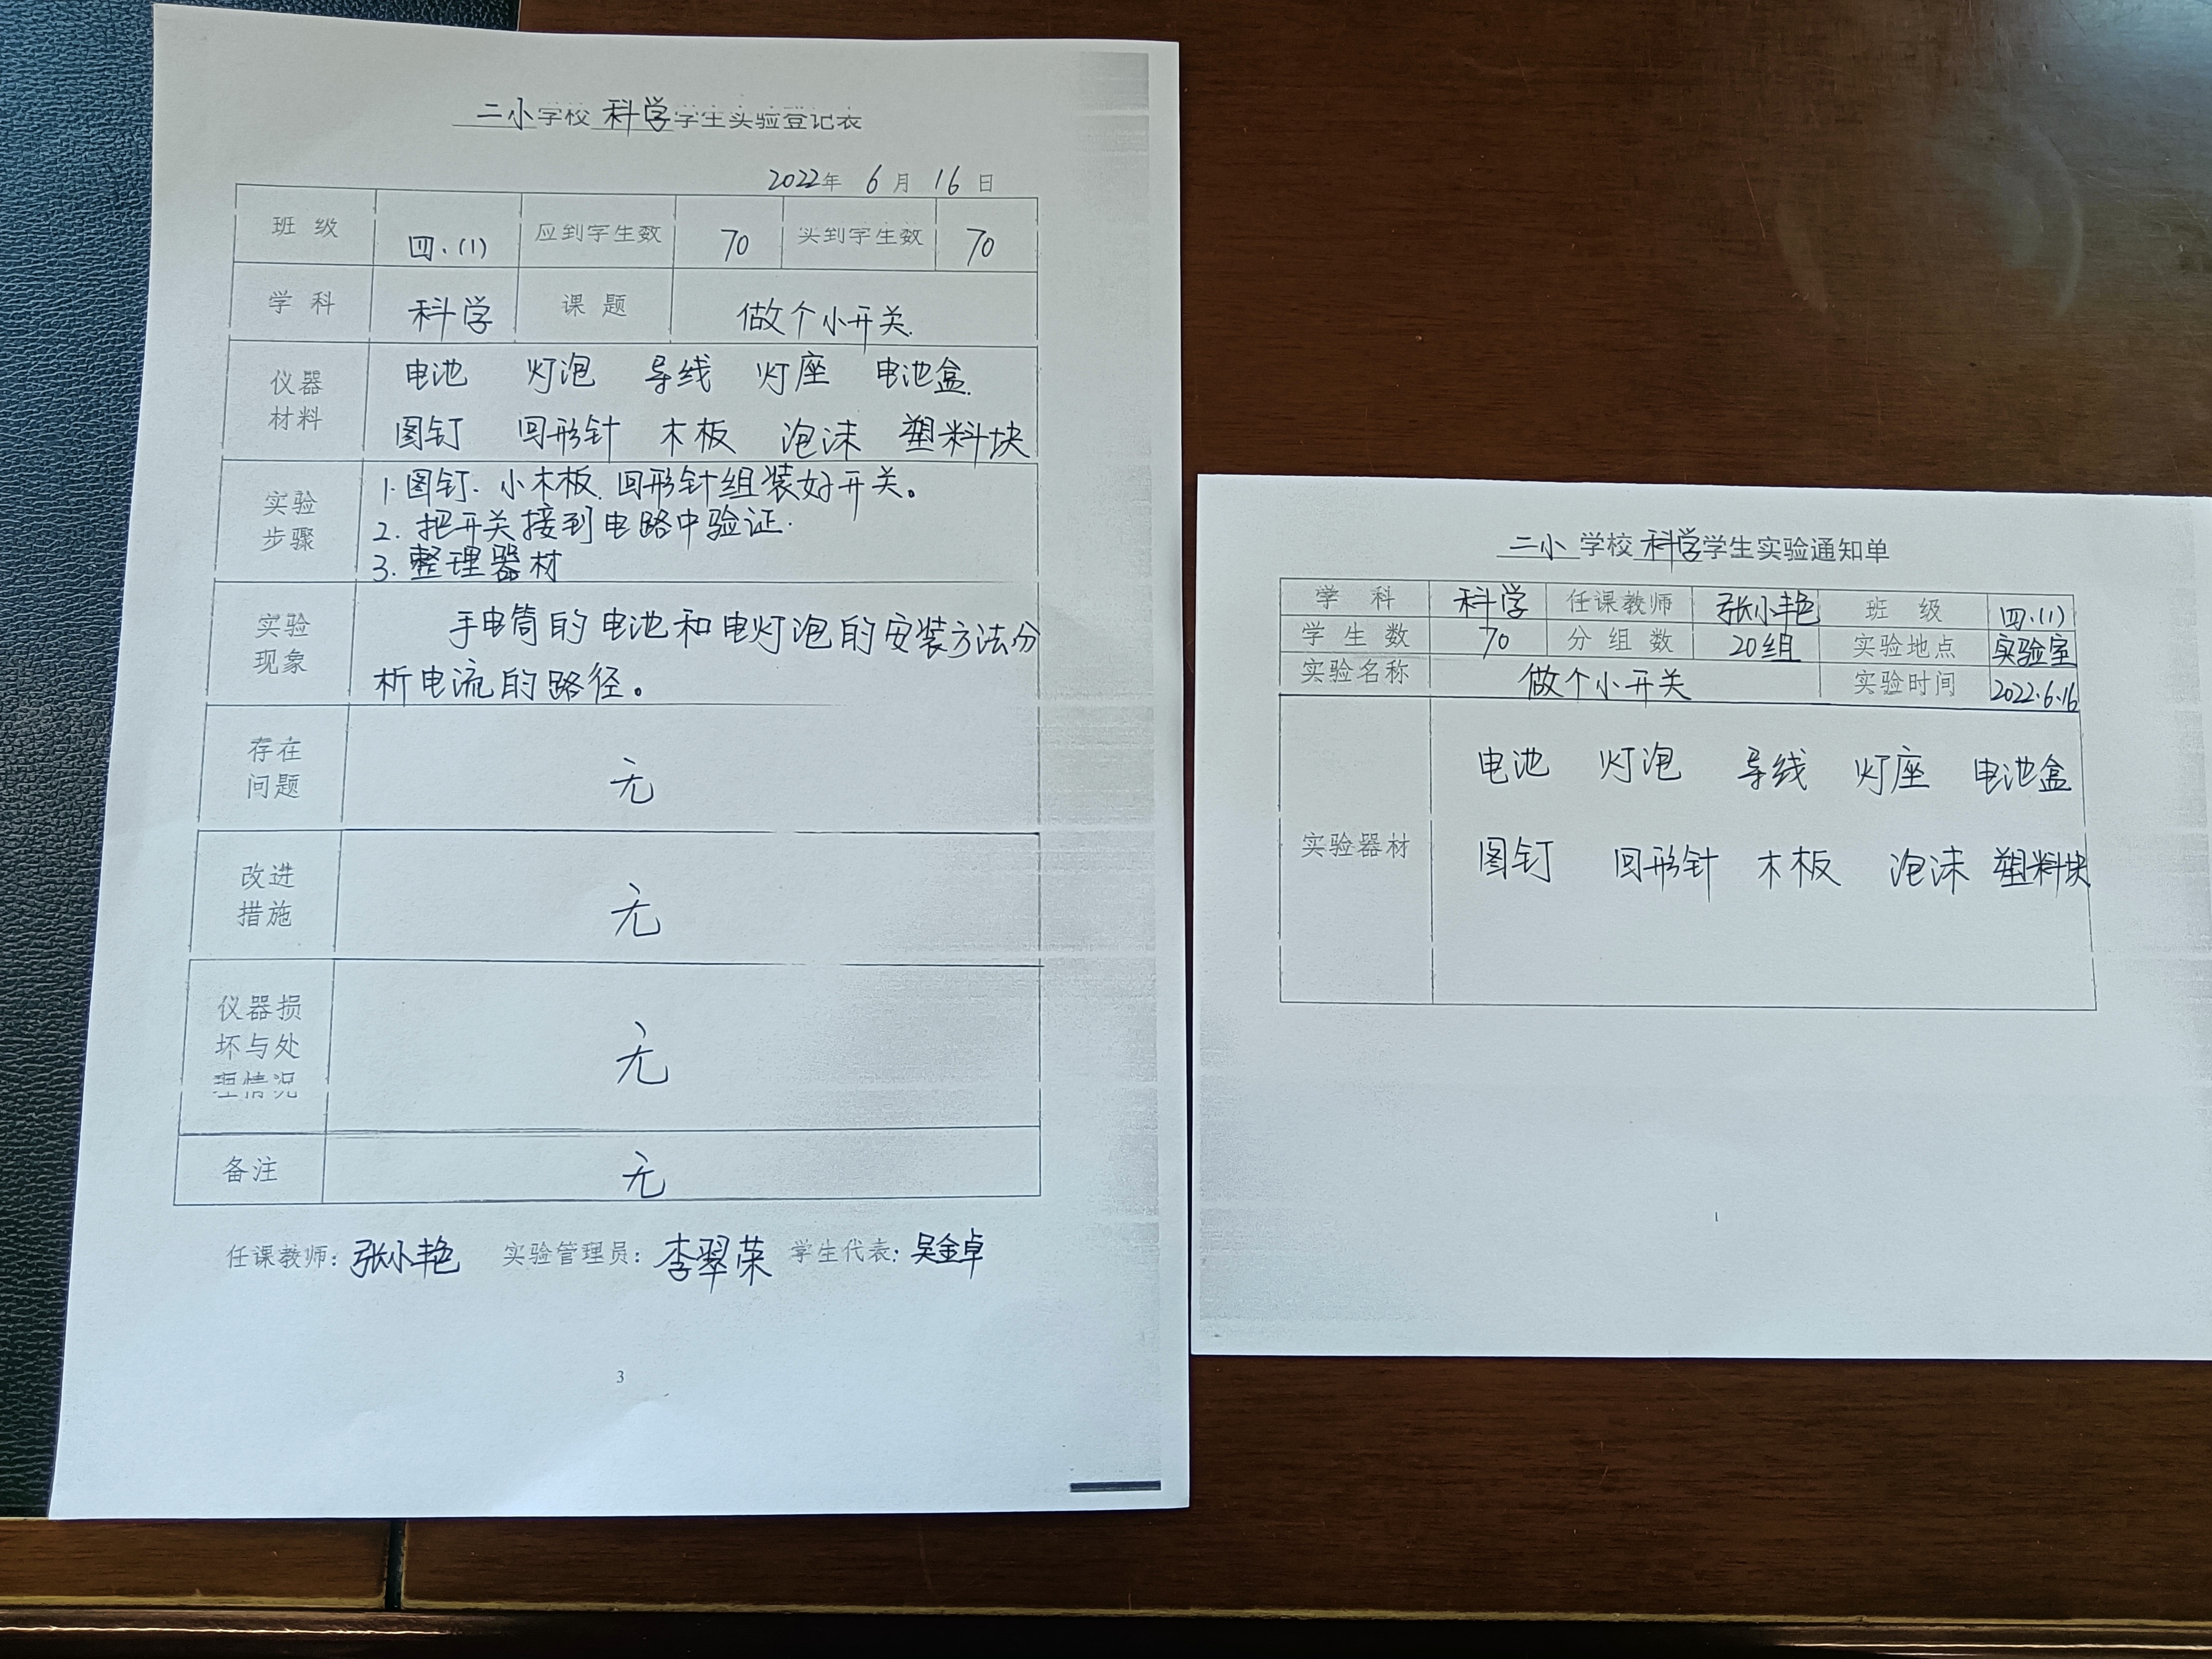 二小学校科学学生实验登记表
2022年 6月 16日
班级 四.(1) 应到学生数 70 实到学生数 70
学科 科学 课题 做个小开关.
仪器材料 电池 灯泡 导线 灯座 电池盒.
图钉 回形针 木板 泡沫 塑料块
实验步骤 1.图钉、小木板、回形针组装好开关。
2.把开关接到电路中验证.
3.整理器材
实验现象 手电筒的电池和电灯泡的安装方法分
析电流的路径。
存在问题 无
改进措施 无
仪器损坏与处理情况 无
备注 无
任课教师:张小艳 实验管理员:李翠荣 学生代表:吴金卓
3
二小学校科学学生实验通知单
学科 科学 任课教师 张小艳 班级 四.(1)
学生数 70 分组数 20组 实验地点 实验室
实验名称 做个小开关 实验时间 2022.6.16
实验器材 电池 灯泡 导线 灯座 电池盒
图钉 回形针 木板 泡沫 塑料块
1